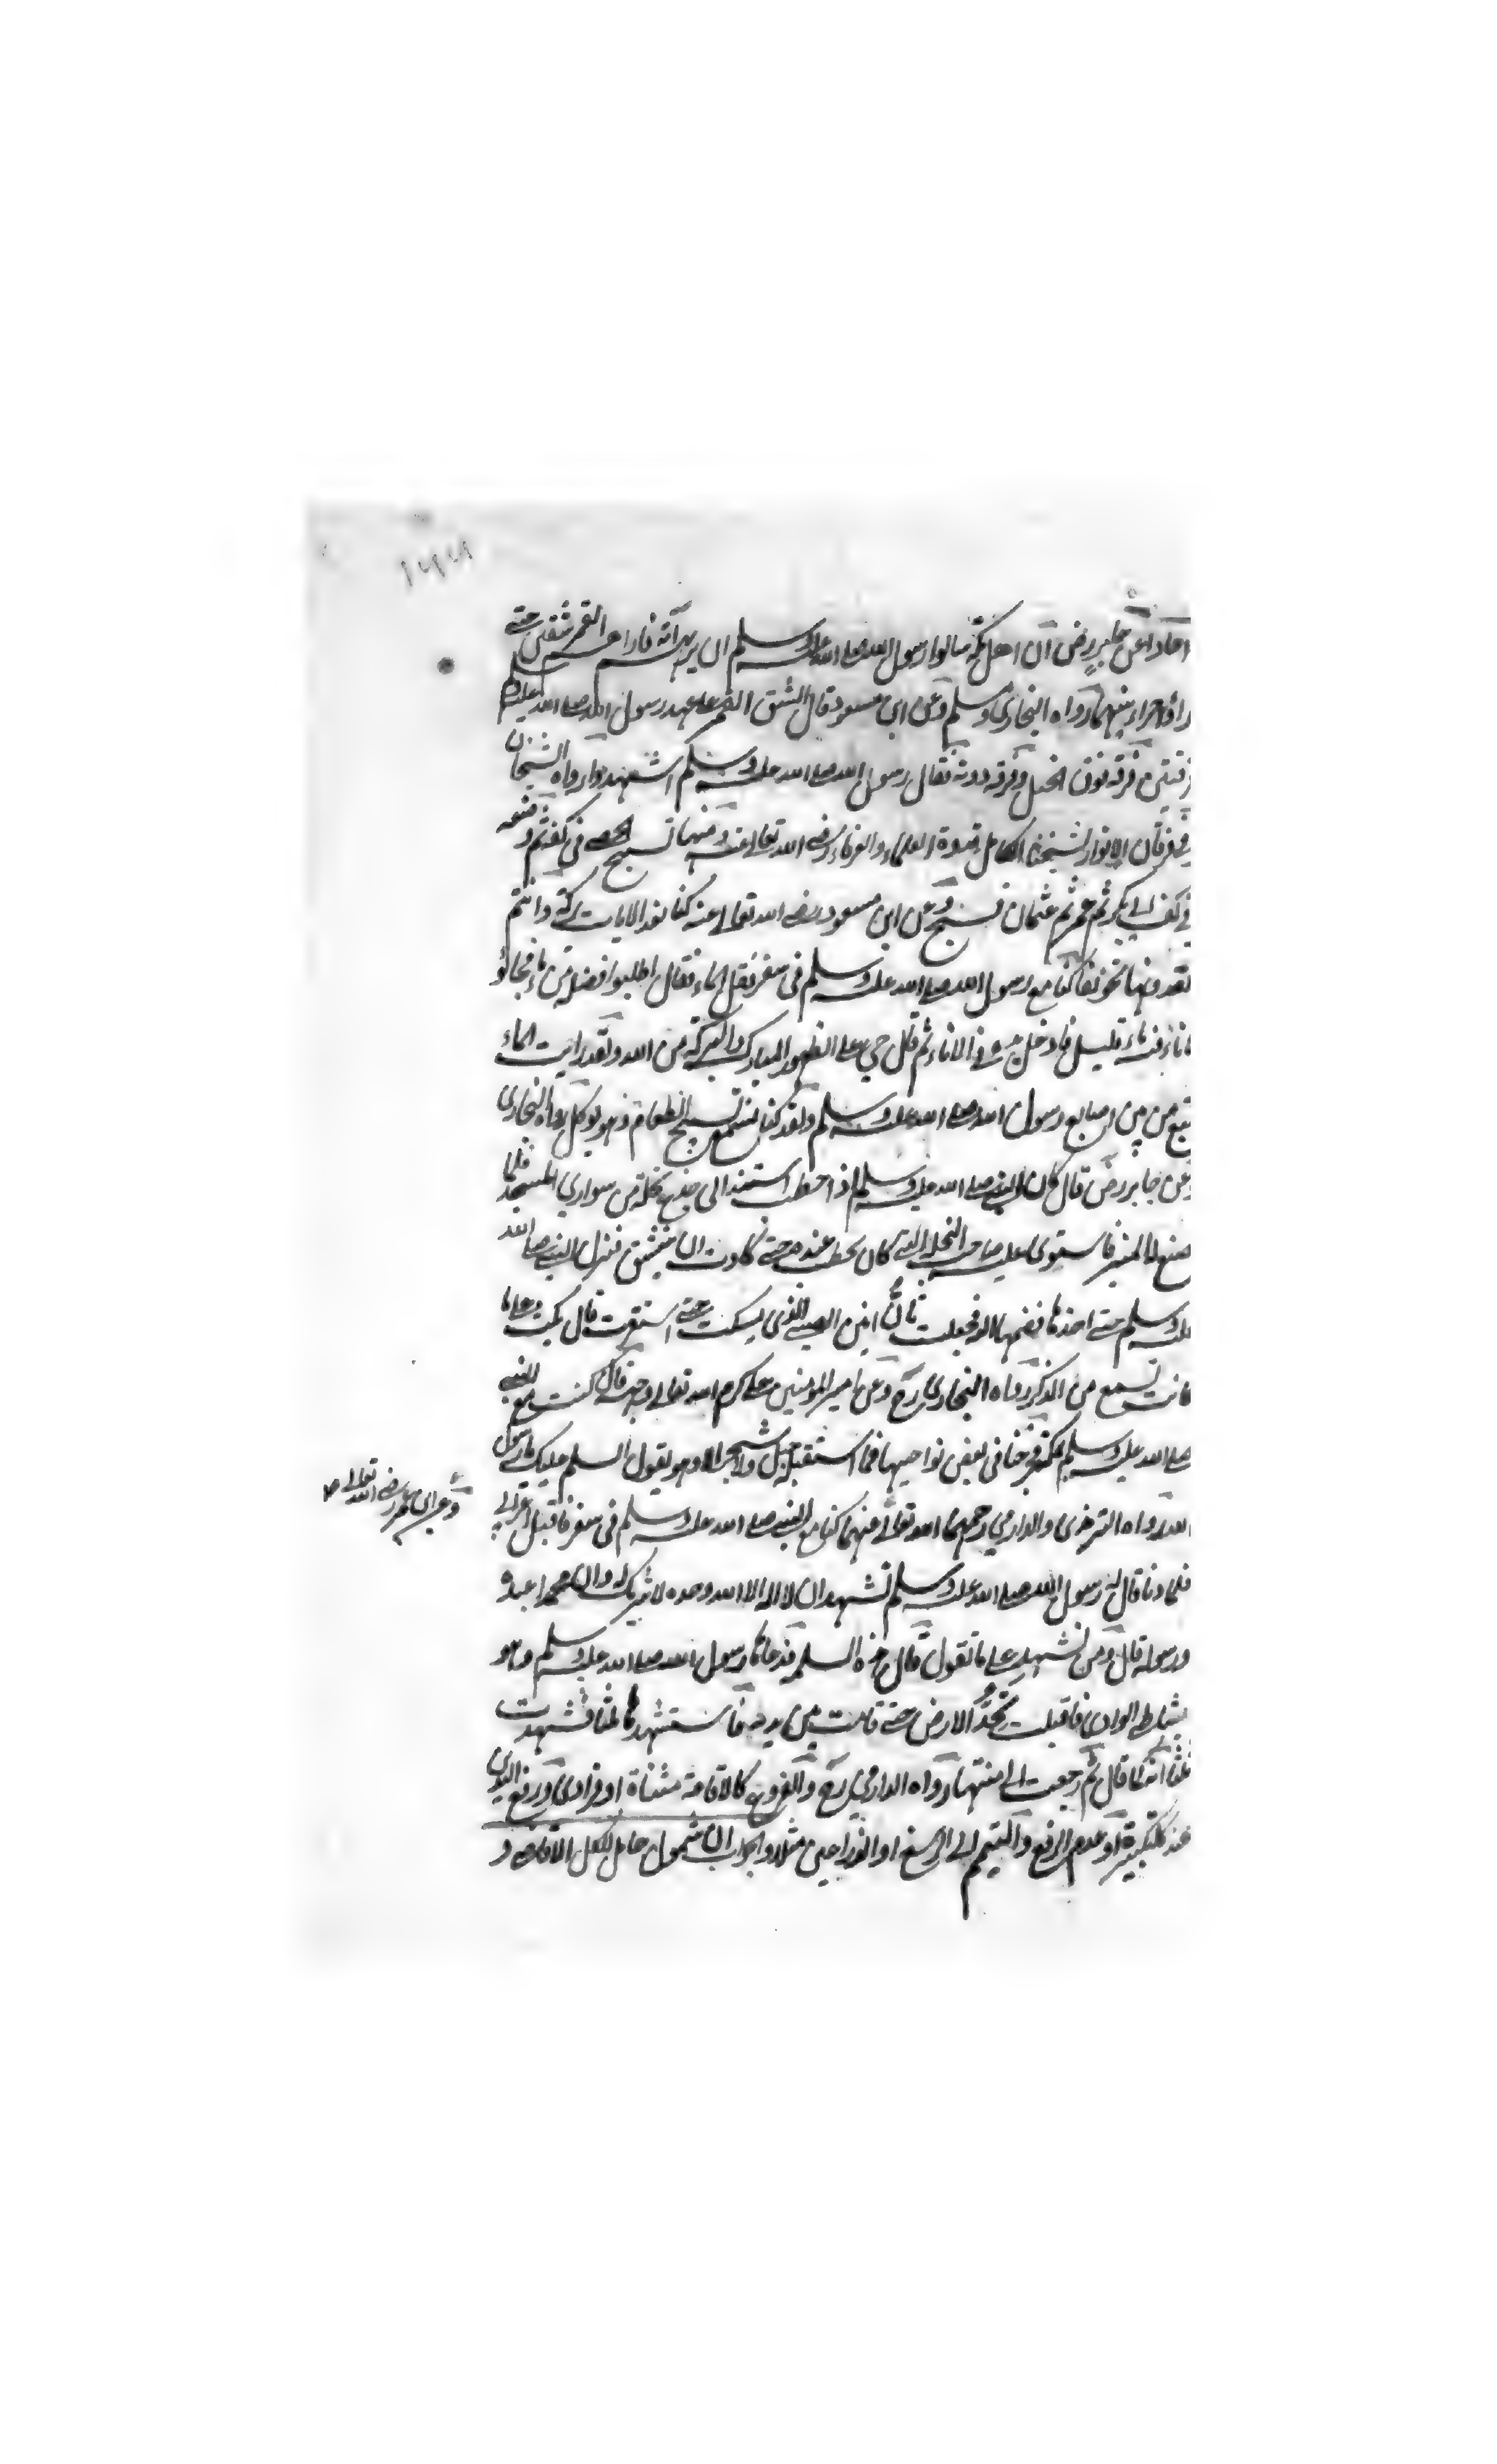 احادا عن جابر رض ان اهل مكة سالوا رسول الله صلى الله عليه وسلم ان يريهم آية فاراهم القمر شقين حتى
راوا حراء بينهما رواه البخاري ومسلم وعن ابن مسعود قال انشق القمر على عهد رسول الله صلى الله عليه وسلم
فرقتين فرقة فوق الجبل وفرقة دونه فقال رسول الله صلى الله عليه وسلم اشهدوا رواه الشيخان
في فرقان الانوار لشيخنا الكامل قدوة العلماء والعرفاء رضي الله تعالى عنه ومنها تسبيح الحصى في كفه ثم وضعه
في كف ابي بكر ثم عمر ثم عثمان فسبح وعن ابن مسعود رضي الله تعالى عنه كنا نعد الايات بركة وانتم
تعدونها تخويفا كنا مع رسول الله صلى الله عليه وسلم في سفر فقل الماء فقال اطلبوا فضلة من ماء فجاؤا
باناء فيه ماء قليل فادخل يده في الاناء ثم قال حي على الطهور المبارك والبركة من الله ولقد رايت الماء
ينبع من بين اصابع رسول الله صلى الله عليه وسلم ولقد كنا نسمع تسبيح الطعام وهو يوكل رواه البخاري
وعن جابر رض قال كان النبي صلى الله عليه وسلم اذا خطب استند الى جذع نخلة من سواري المسجد فلما
صنع له المنبر فاستوى عليه صاحت النخلة التي كان يخطب عندها حتى كادت ان تنشق فنزل النبي صلى الله
عليه وسلم حتى اخذها فضمها اليه فجعلت تأن انين الصبي الذي يسكت حتى استقرت قال بكت على ما
كانت تسمع من الذكر رواه البخاري رح وعن امير المؤمنين علي كرم الله تعالى وجهه قال كنت مع النبي
صلى الله عليه وسلم بمكة فخرجنا في بعض نواحيها فما استقبله جبل ولا شجر الا وهو يقول السلم عليك يا رسول
الله رواه الترمذي والدارمي رحمهما الله تعالى عنهما كنا مع النبي صلى الله عليه وسلم في سفر فاقبل اعرابي
وعن ابن عمر رضي الله تعالى
فلما دنا قال له رسول الله صلى الله عليه وسلم تشهد ان لا اله الا الله وحده لا شريك له وان محمدا عبده
ورسوله قال ومن يشهد على ما تقول قال هذه السلمة فدعاها رسول الله صلى الله عليه وسلم وهو
بشاطى الوادي فاقبلت تخد الارض حتى قامت بين يديه فاستشهدها ثلثا فشهدت
ثلثا انه كما قال ثم رجعت الى منبتها رواه الدارمي رح والفروع كالاقامة مثناة او فرادى ورفع اليدين
عند التكبيرة او عدم الرفع والتيمم الى الرسغ او الذراعين مثلا والجواب ان شمول حامل للكل الآفاقي و